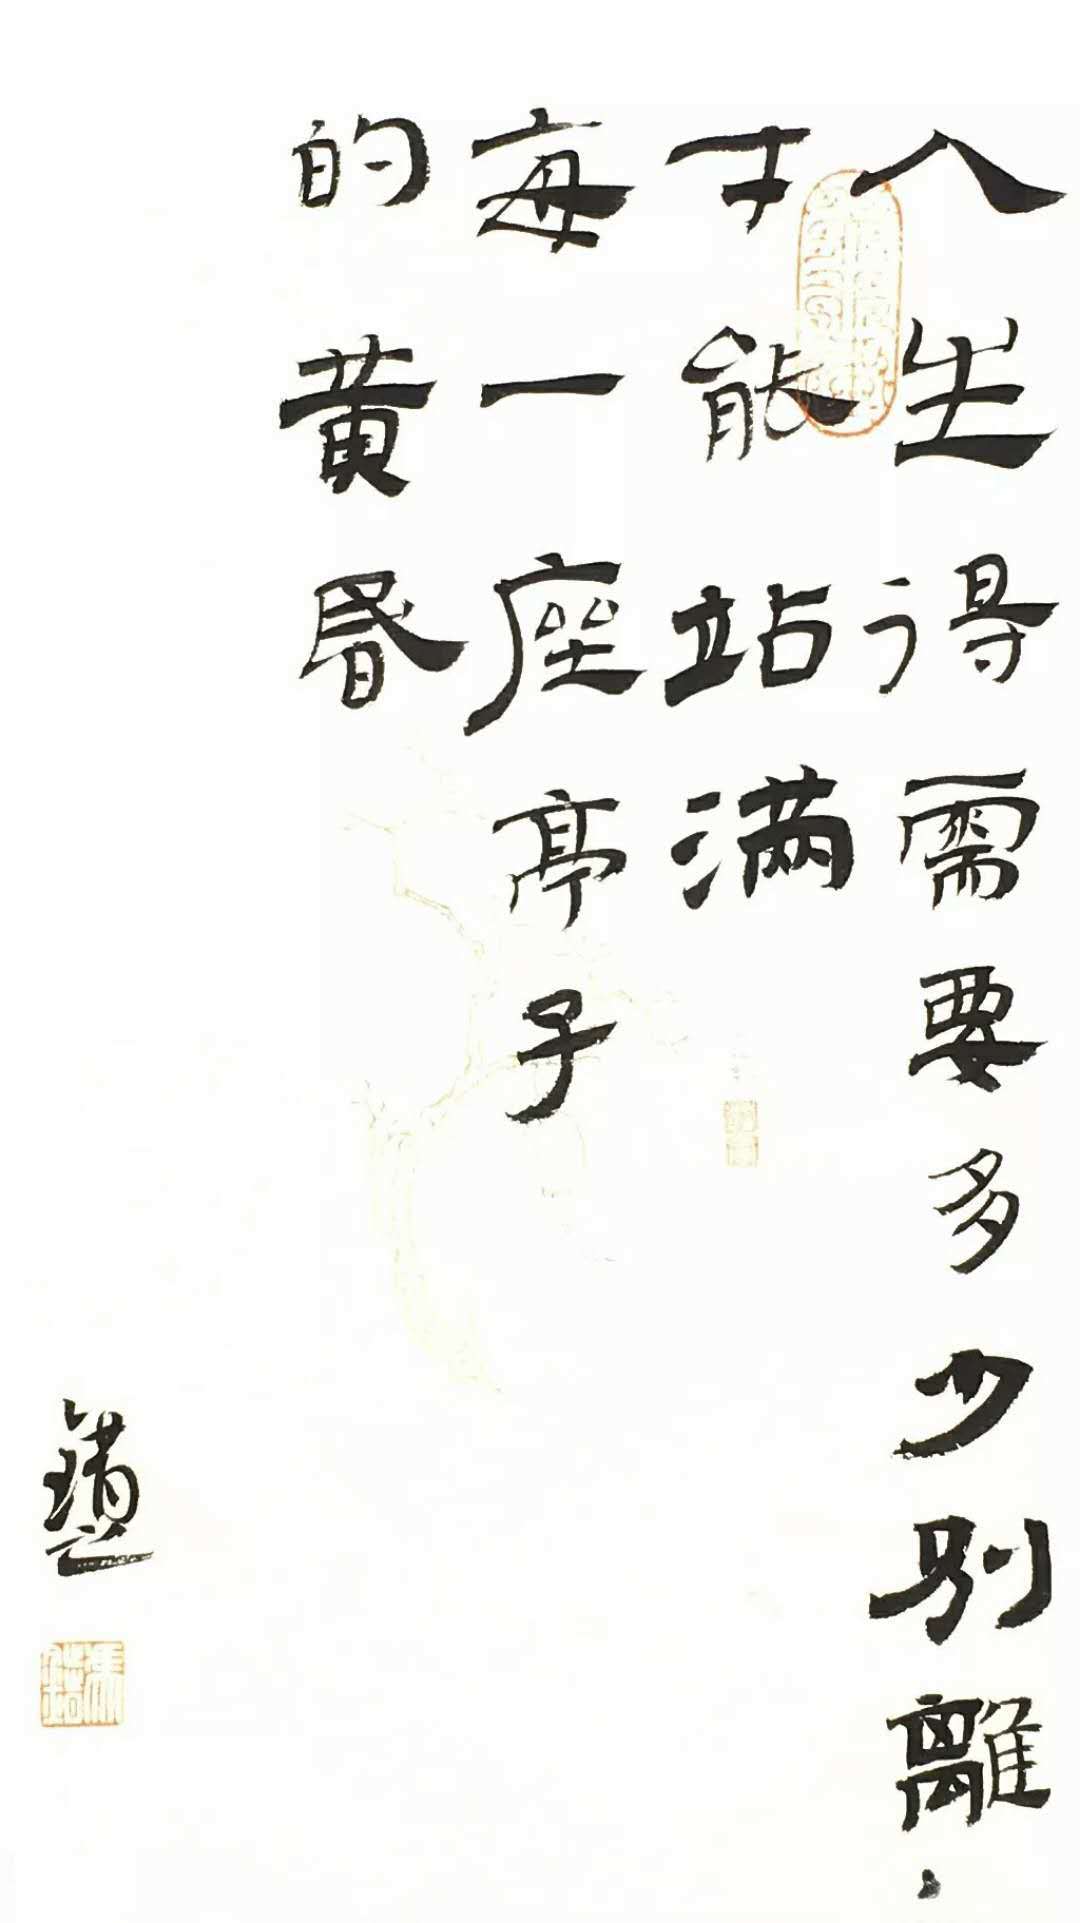 人生得需要多少别離，
才能站满
每一座亭子
的黄昏